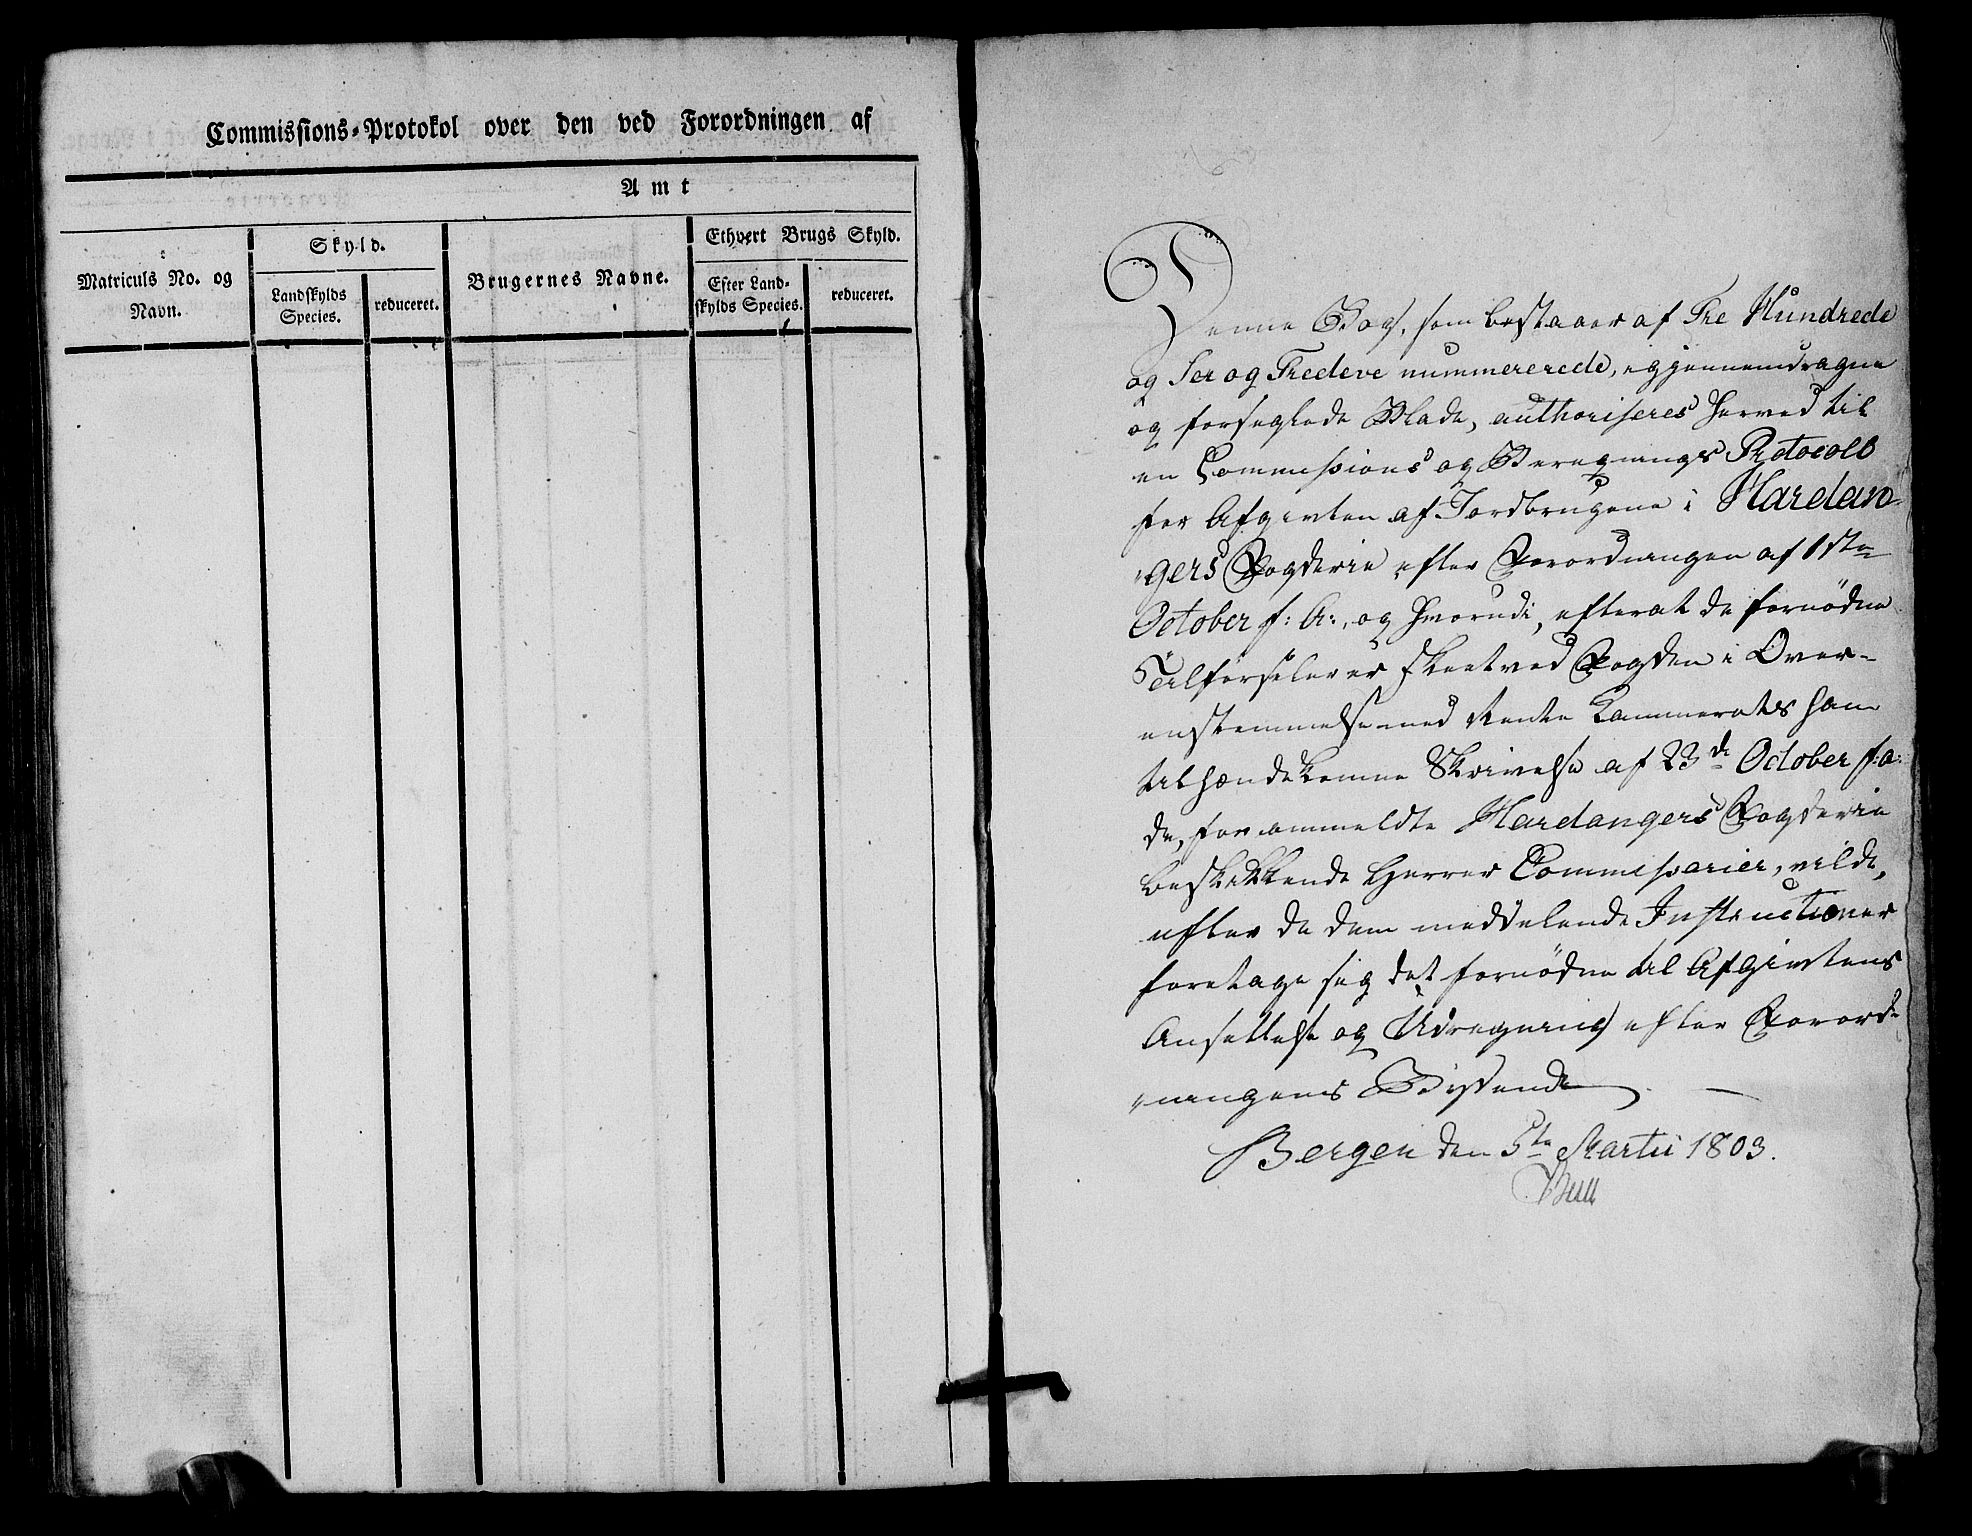 Commissions-Protokol over den ved Forordningen af
Amt
Matriculs No. og
Navn.
Skyld.
Landskylds
Species.
reduceret.
Brugernes Navne.
Ethvert Brugs Skyld.
Efter Land-
skylds Species.
reduceret.
Denne Bog, som bestaaer af Tre Hundrede
og Sex og Tredeve nummererede, igjennemdragne
og forseglede Blade, authoriseres herved til
en Commissions og Beregnings Protocoll
for Afgivten af Jordbrugene i Hardan-
gers Fogderie efter Forordningen af 1ste
October f: A:, og hvorudi, efterat de fornødne
Tilførseler er skeet ved Fogden i Over-
enstemmelse med Rente Kammerets ham
tilhændekomne Skrivelse af 23de October f: a:
de, for ommeldte Hardangers Fogderie
beskikkende Herrer Commissarier, vilde,
efter de dem meddelende Instructioner
foretage sig det fornødne til Afgivtens
Ansettelse og Udregning efter Forord-
ningens Bydende
Bergen den 5te Martii 1803.
Bull